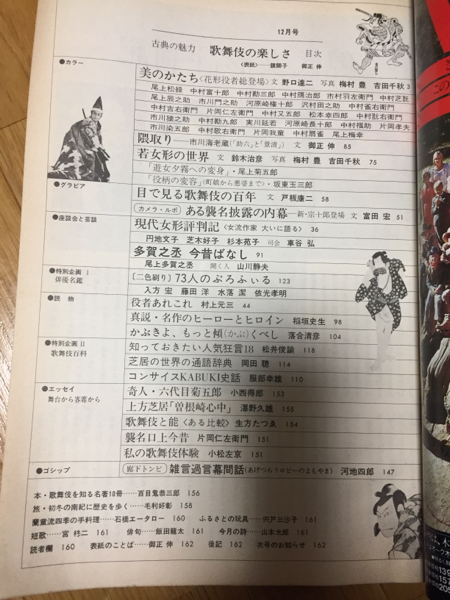 12月号
古典の魅力 歌舞伎の楽しさ 目次
〈表紙〉……鏡獅子 御正 伸
●カラー
美のかたち〈花形役者総登場〉文 野口達二 写真 梅村 豊 吉田千秋 3
尾上松緑 中村富十郎 中村勘三郎 中村鴈治郎 市村羽左衛門 中村芝翫
尾上辰之助 市川門之助 河原崎権十郎 沢村田之助 中村雀右衛門
中村吉右衛門 片岡仁左衛門 中村又五郎 松本幸四郎 中村歌右衛門
市川猿之助 中村勘九郎 実川延若 河原崎長十郎 中村福助 片岡孝夫
市川染五郎 中村歌右衛門 片岡我童 中村扇雀 尾上梅幸
隈取り——市川海老蔵「助六」と「景清」 文 御正 伸 65
若女形の世界 文 鈴木治彦 写真 梅村 豊 吉田千秋 75
「遊女夕霧への変身」・尾上菊五郎
「役柄の変容」(町娘から悪婆まで)・坂東玉三郎
●グラビア
目で見る歌舞伎の百年 文 戸板康二 58
カメラ・ルポ ある襲名披露の内幕——新・宗十郎登場 文 富田 宏 51
●座談会と芸談
現代女形評判記〈女流作家 大いに語る〉 36
円地文子 芝木好子 杉本苑子 司会 車谷 弘
多賀之丞 今昔ばなし 91
尾上多賀之丞 聞く人 山川静夫
●特別企画 I
俳優名鑑
〔二色刷り〕73人のぷろふぃる 123
入方 宏 藤田 洋 水落 潔 依光孝明
●読物
役者あれこれ 村上元三 44
真説・名作のヒーローとヒロイン 稲垣史生 96
かぶきよ、もっと傾(かぶ)くべし 落合清彦 104
●特別企画 II
歌舞伎百科
知っておきたい人気狂言18 松井俊諭 118
芝居の世界の通語辞典 岡田 聰 114
コンサイスKABUKI史話 服部幸雄 110
●エッセイ
舞台から客席から
奇人・六代目菊五郎 小西得郎 153
上方芝居「曽根崎心中」 澤野久雄 155
歌舞伎と能〈ある比較〉 生方たつゑ 154
襲名口上今昔 片岡仁左衛門 151
私の歌舞伎体験 小松左京 151
●ゴシップ
廊下トンビ 雑言過言幕間話(あげつもりロビーのよもやま) 河地四郎 147
本・歌舞伎を知る名著18冊……百目鬼恭三郎 156
旅・初冬の南紀に歴史を歩く……毛利好彰 158
蘭童流四季の手料理……石橋エータロー 160 ふるさとの玩具……宍戸三沙子 161
短歌……宮 柊二 161 俳句……飯田龍太 161 今月の詩……山本太郎 161
読者欄 160 表紙のことば……御正 伸 162 後記 162 次号のお知らせ 162